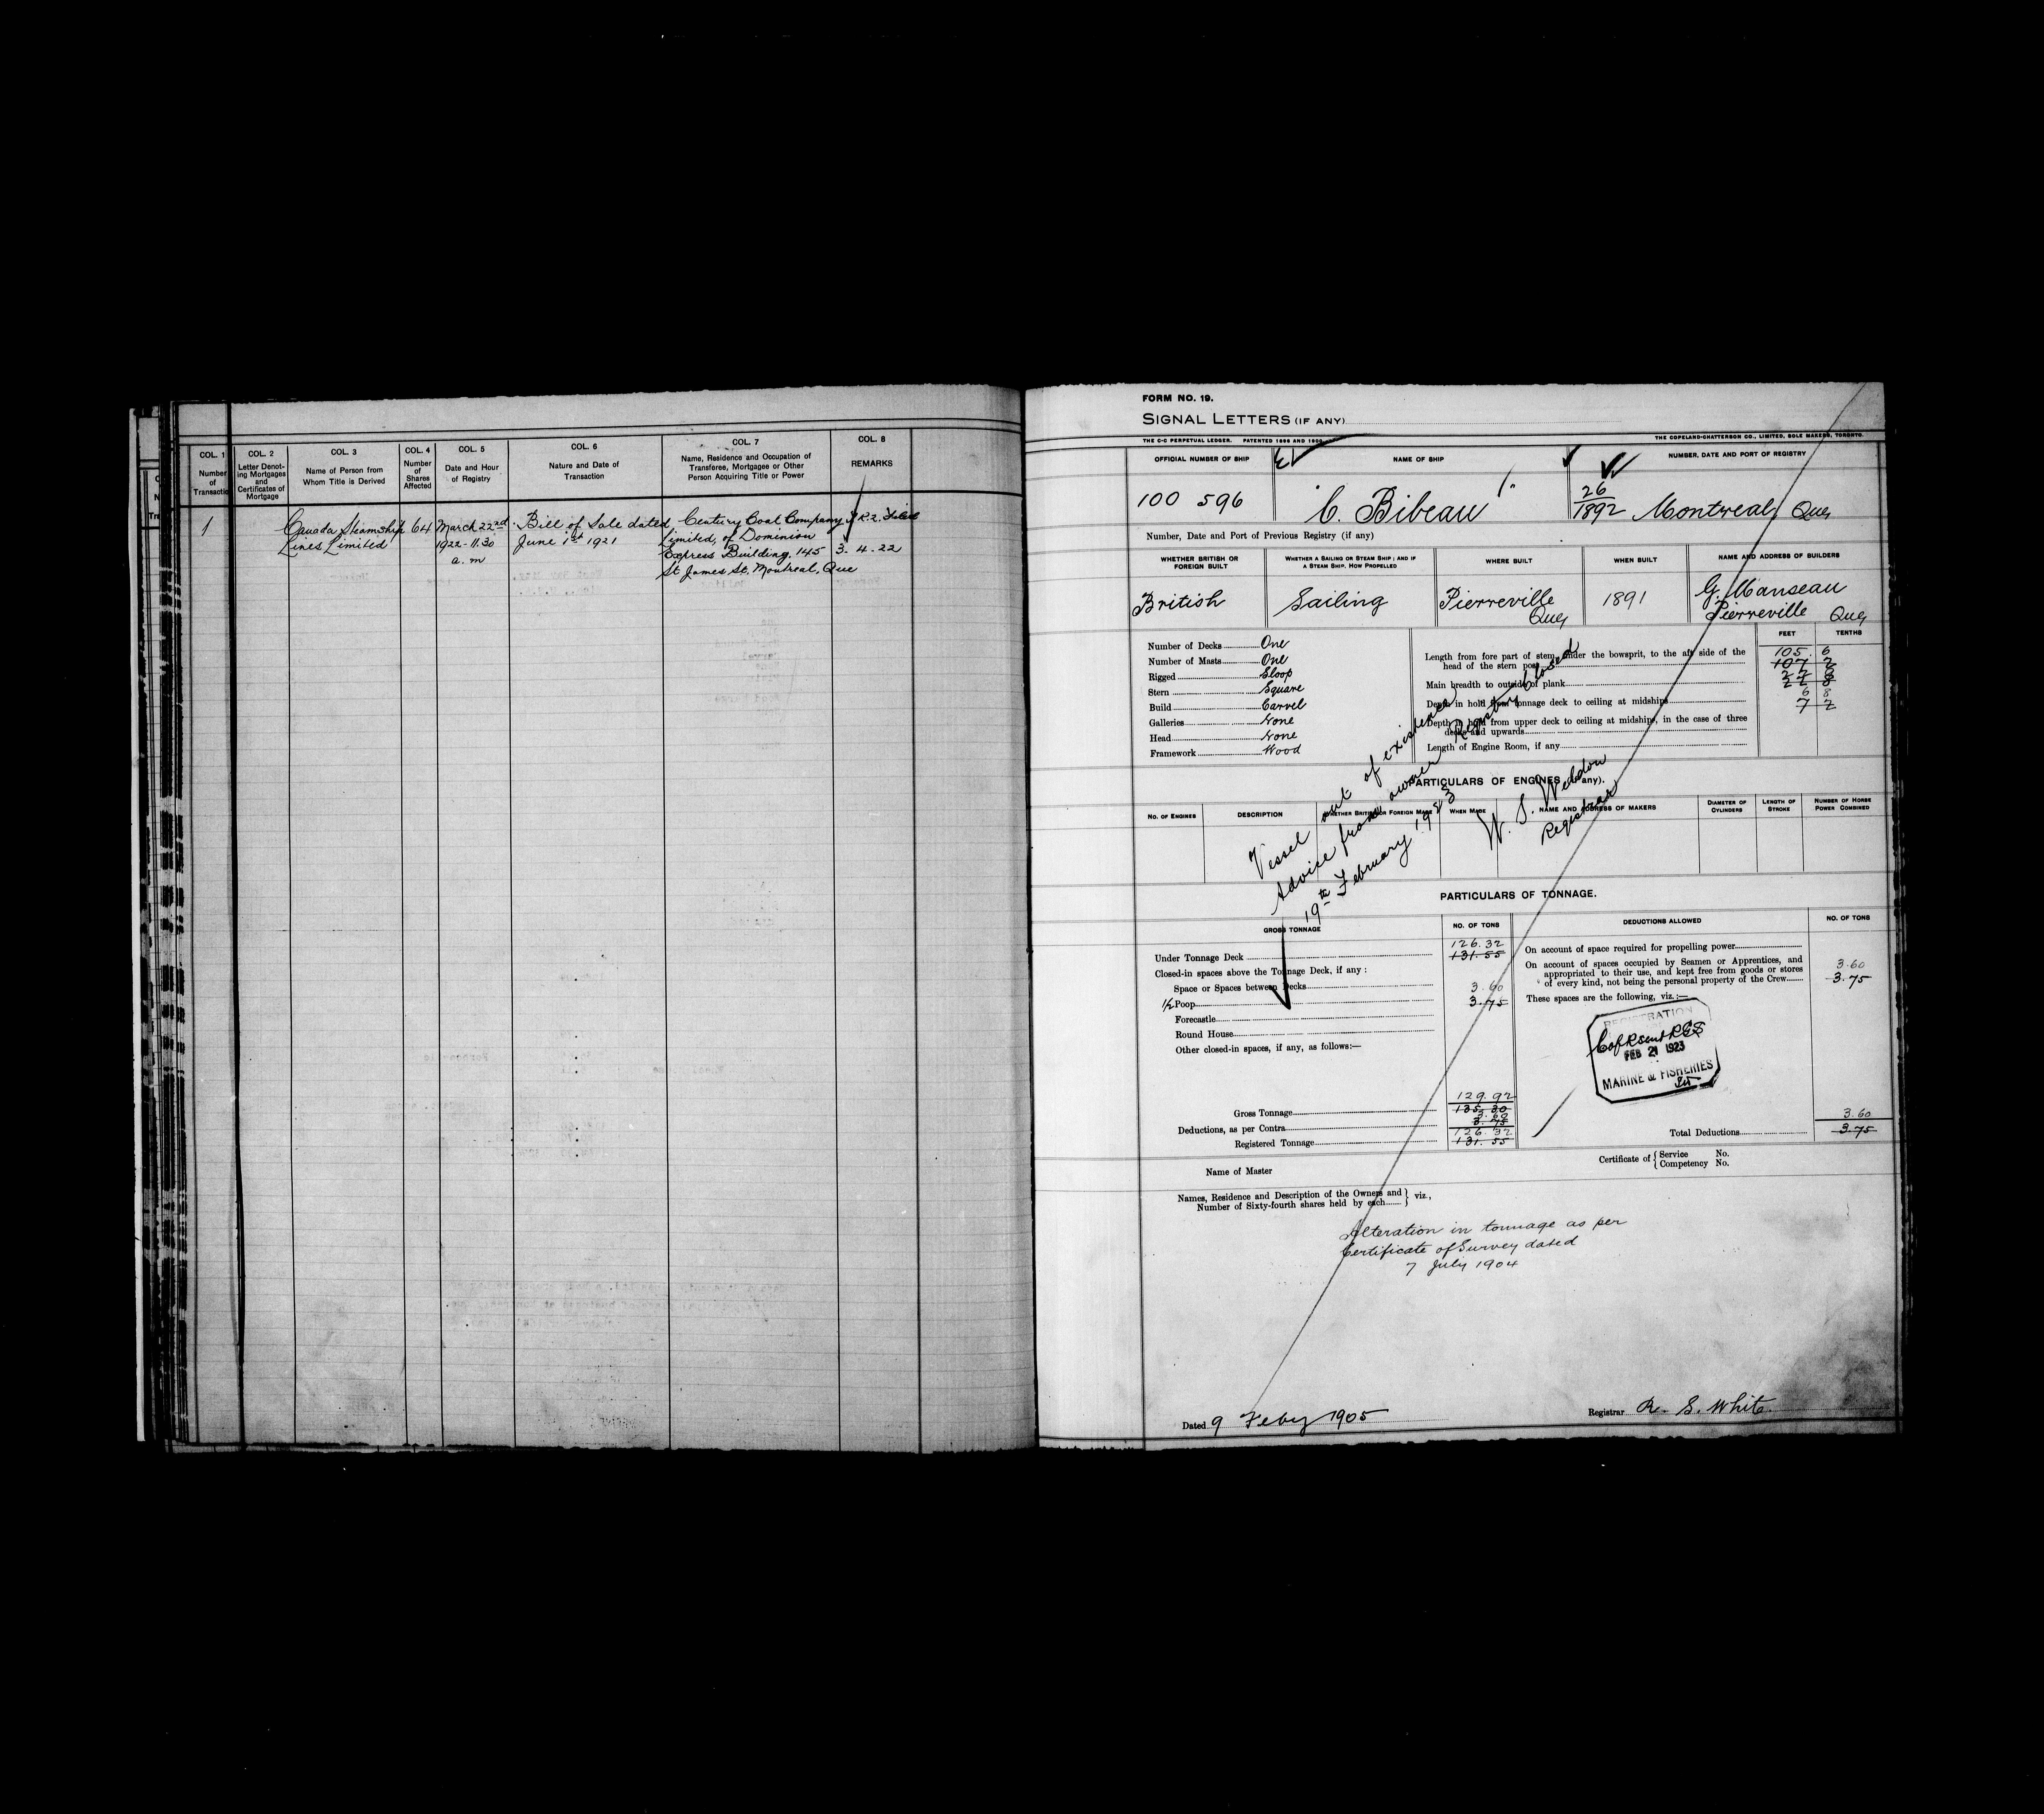 COL. 1
Number
of
Transactio
COL. 2
Letter Denot-
ing Mortgages
and
Certificates of
Mortgage
COL. 3
Name of Person from
Whom Title is Derived
COL. 4
Number
of
Shares
Affected
COL. 5
Date and Hour
of Registry
COL. 6
Nature and Date of
Transaction
COL. 7
Name, Residence and Occupation of
Transferee, Mortgagee or Other
Person Acquiring Title or Power
COL. 8
REMARKS
1
Canada Steamship
Lines Limited
64
March 22nd
1922 - 11.30
a. m
Bill of Sale dated
June 1st 1921
Century Coal Company
Limited, of Dominion
Express Building, 145
St James St. Montreal, Que
Filed
3. 4. 22
FORM NO. 19.
SIGNAL LETTERS (IF ANY)
THE C-C PERPETUAL LEDGER. PATENTED 1896 AND 1900
THE COPELAND-CHATTERSON CO., LIMITED, SOLE MAKERS, TORONTO.
OFFICIAL NUMBER OF SHIP
NAME OF SHIP
NUMBER, DATE AND PORT OF REGISTRY
100 596
"C. Bibeau"
26
1892 Montreal, Que,
Number, Date and Port of Previous Registry (if any)
WHETHER BRITISH OR
FOREIGN BUILT
WHETHER A SAILING OR STEAM SHIP; AND IF
A STEAM SHIP, HOW PROPELLED
WHERE BUILT
WHEN BUILT
NAME AND ADDRESS OF BUILDERS
British
Sailing
Pierreville
Que,
1891
G. Manseau
Pierreville Que,
Number of Decks One
Number of Masts One
Rigged Sloop
Stern Square
Build Carvel
Galleries None
Head None
Framework Wood
FEET TENTHS
Length from fore part of stem, under the bowsprit, to the aft side of the
head of the stern post
105. 6
107 2
Main breadth to outside of plank
22 8
Depth in hold from tonnage deck to ceiling at midships
6 8
7 2
Depth in hold from upper deck to ceiling at midships, in the case of three
decks and upwards
Length of Engine Room, if any
Vessel out of existence
Advice from owner Registry closed
19th February 1923
W. S. Weldon
Registrar
PARTICULARS OF ENGINES (if any).
NO. OF ENGINES
DESCRIPTION
WHETHER BRITISH OR FOREIGN MADE
WHEN MADE
NAME AND ADDRESS OF MAKERS
DIAMETER OF
CYLINDERS
LENGTH OF
STROKE
NUMBER OF HORSE
POWER COMBINED
PARTICULARS OF TONNAGE.
GROSS TONNAGE
NO. OF TONS
126.32
Under Tonnage Deck 131.55
Closed-in spaces above the Tonnage Deck, if any:
Space or Spaces between Decks 3.60
1/2 Poop 3.75
Forecastle
Round House
Other closed-in spaces, if any, as follows:—
129.92
Gross Tonnage 135.30
3.60
Deductions, as per Contra 3.75
126.32
Registered Tonnage 131.55
DEDUCTIONS ALLOWED
NO. OF TONS
On account of space required for propelling power
On account of spaces occupied by Seamen or Apprentices, and
appropriated to their use, and kept free from goods or stores
of every kind, not being the personal property of the Crew
3.60
3.75
These spaces are the following, viz.:—
REGISTRATION
C of R sent RGS
FEB 21 1923
MARINE & FISHERIES
3.60
Total Deductions 3.75
Name of Master
Certificate of { Service No.
Competency No.
Names, Residence and Description of the Owners and
Number of Sixty-fourth shares held by each } viz.,
Alteration in tonnage as per
Certificate of Survey dated
7 July 1904
Dated 9 Feby 1905
Registrar R. S. White.